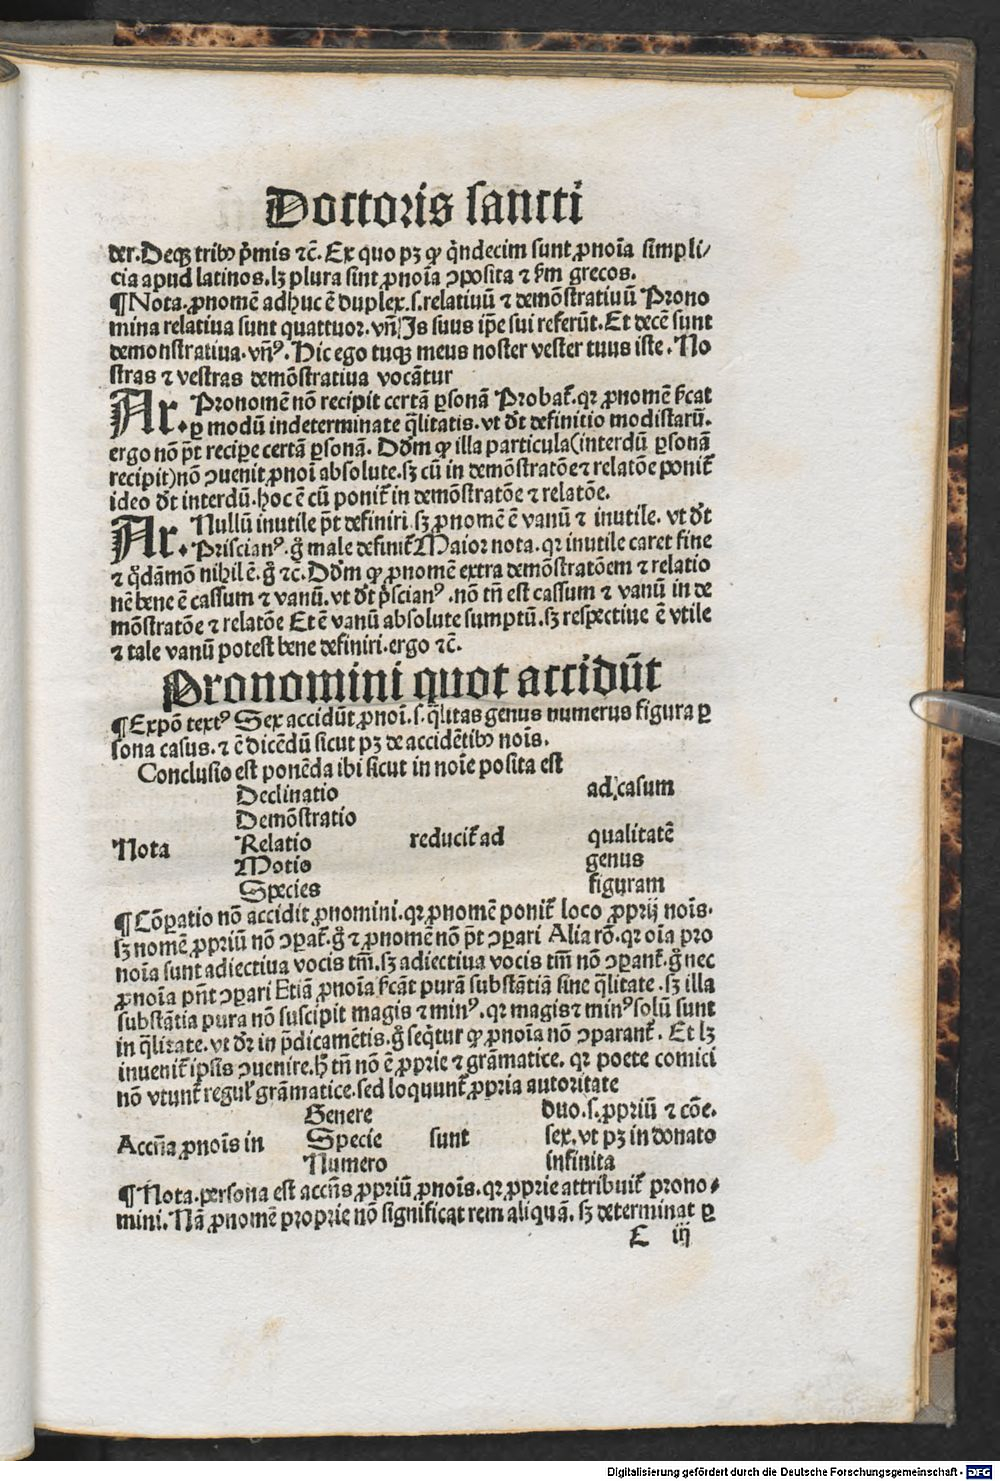 Doctoris sancti
der. Deqꝫ tribꝰ p̄mis ⁊c̄. Ex quo pꝫ ꝙ q̄ndecim sunt ꝓnoīa simpli/
cia apud latinos. lꝫ plura sint ꝓnoīa ↄposita ⁊ ẜm grecos.
¶ Nota. ꝓnomē adhuc ē duplex. s. relatiuū ⁊ demōstratiuū Prono
mina relatiua sunt quattuor. vn̄ Is suus ip̄e sui referūt. Et decē sunt
demonstratiua. vn̄ꝰ. Hic ego tuqꝫ meus noster vester tuus iste. No
stras ⁊ vestras demōstratiua vocātur
Ar. Pronomē nō recipit certā ꝑsonā Probat̄. qꝛ ꝓnomē ẜcat
ꝑ modū indeterminate q̄litatis. vt dr̄t definitio modistarū.
ergo nō pt̄ recipe certā ꝑsonā. Dd̄m ꝙ illa particula (interdū ꝑsonā
recipit) nō ↄuenit ꝓnoī absolute. sꝫ cū in demōstratōe ⁊ relatōe ponit̄
ideo dr̄t interdū. hoc ē cū ponit̄ in demōstratōe ⁊ relatōe.
Ar. Nullū inutile pt̄ definiri sꝫ ꝓnomē ē vanū ⁊ inutile. vt dr̄t
Priscianꝰ. g̊ male definit̄ Maior nota. qꝛ inutile caret fine
⁊ q̊dāmō nihil ē. g̊ ⁊c̄. Dd̄m ꝙ ꝓnomē extra demōstratōem ⁊ relatio
nē bene ē cassum ⁊ vanū. vt dr̄t p̄scianꝰ. nō tn̄ est cassum ⁊ vanū in de
mōstratōe ⁊ relatōe Et ē vanū absolute sumptū. sꝫ respectiue ē vtile
⁊ tale vanū potest bene definiri. ergo ⁊c̄.
Pronomini quot accidūt
¶ Expō textꝰ Sex accidūt ꝓnoī. s. q̄litas genus numerus figura ꝑ
sona casus. ⁊ ē dicēdū sicut pꝫ de accidētibꝰ noīs.
Conclusio est ponēda ibi sicut in noīe posita est
Declinatio ad casum
Demōstratio
Nota Relatio reducit̄ ad qualitatē
Motio genus
Species figuram
¶ Cōꝑatio nō accidit ꝓnomini. qꝛ ꝓnomē ponit̄ loco ꝓprij noīs.
sꝫ nomē ꝓpriū nō ↄꝑat̄. g̊ ⁊ ꝓnomē nō pt̄ ↄꝑari Alia rō. qꝛ oīa pro
noīa sunt adiectiua vocis tm̄. sꝫ adiectiua vocis tm̄ nō ↄꝑant̄. g̊ nec
ꝓnoīa pn̄t ↄꝑari Etiā ꝓnoīa ẜcāt purā substātiā sine q̄litate. sꝫ illa
substātia pura nō suscipit magis ⁊ minꝰ. qꝛ magis ⁊ minꝰ solū sunt
in q̄litate. vt dr̄ in p̄dicamētis. g̊ seq̄tur ꝙ ꝓnoīa nō ↄparant̄. Et lꝫ
inuenit̄ ipsis ↄuenire. h̄ tn̄ nō ē ꝓprie ⁊ grāmatice. qꝛ poete comici
nō vtunt̄ regul̄ grāmatice. sed loquunt̄ ꝓpria autoritate
Genere duo. s. ꝓpriū ⁊ cōe.
Accn̄a ꝓnoīs in Specie sunt sex. vt pꝫ in donato
Numero infinita
¶ Nota. persona est accn̄s ꝓpriū ꝓnoīs. qꝛ ꝓprie attribuit̄ prono
mini. Nā ꝓnomē proprie nō significat rem aliquā. sꝫ determinat ꝑ
E iij
Digitalisierung gefördert durch die Deutsche Forschungsgemeinschaft - DFG